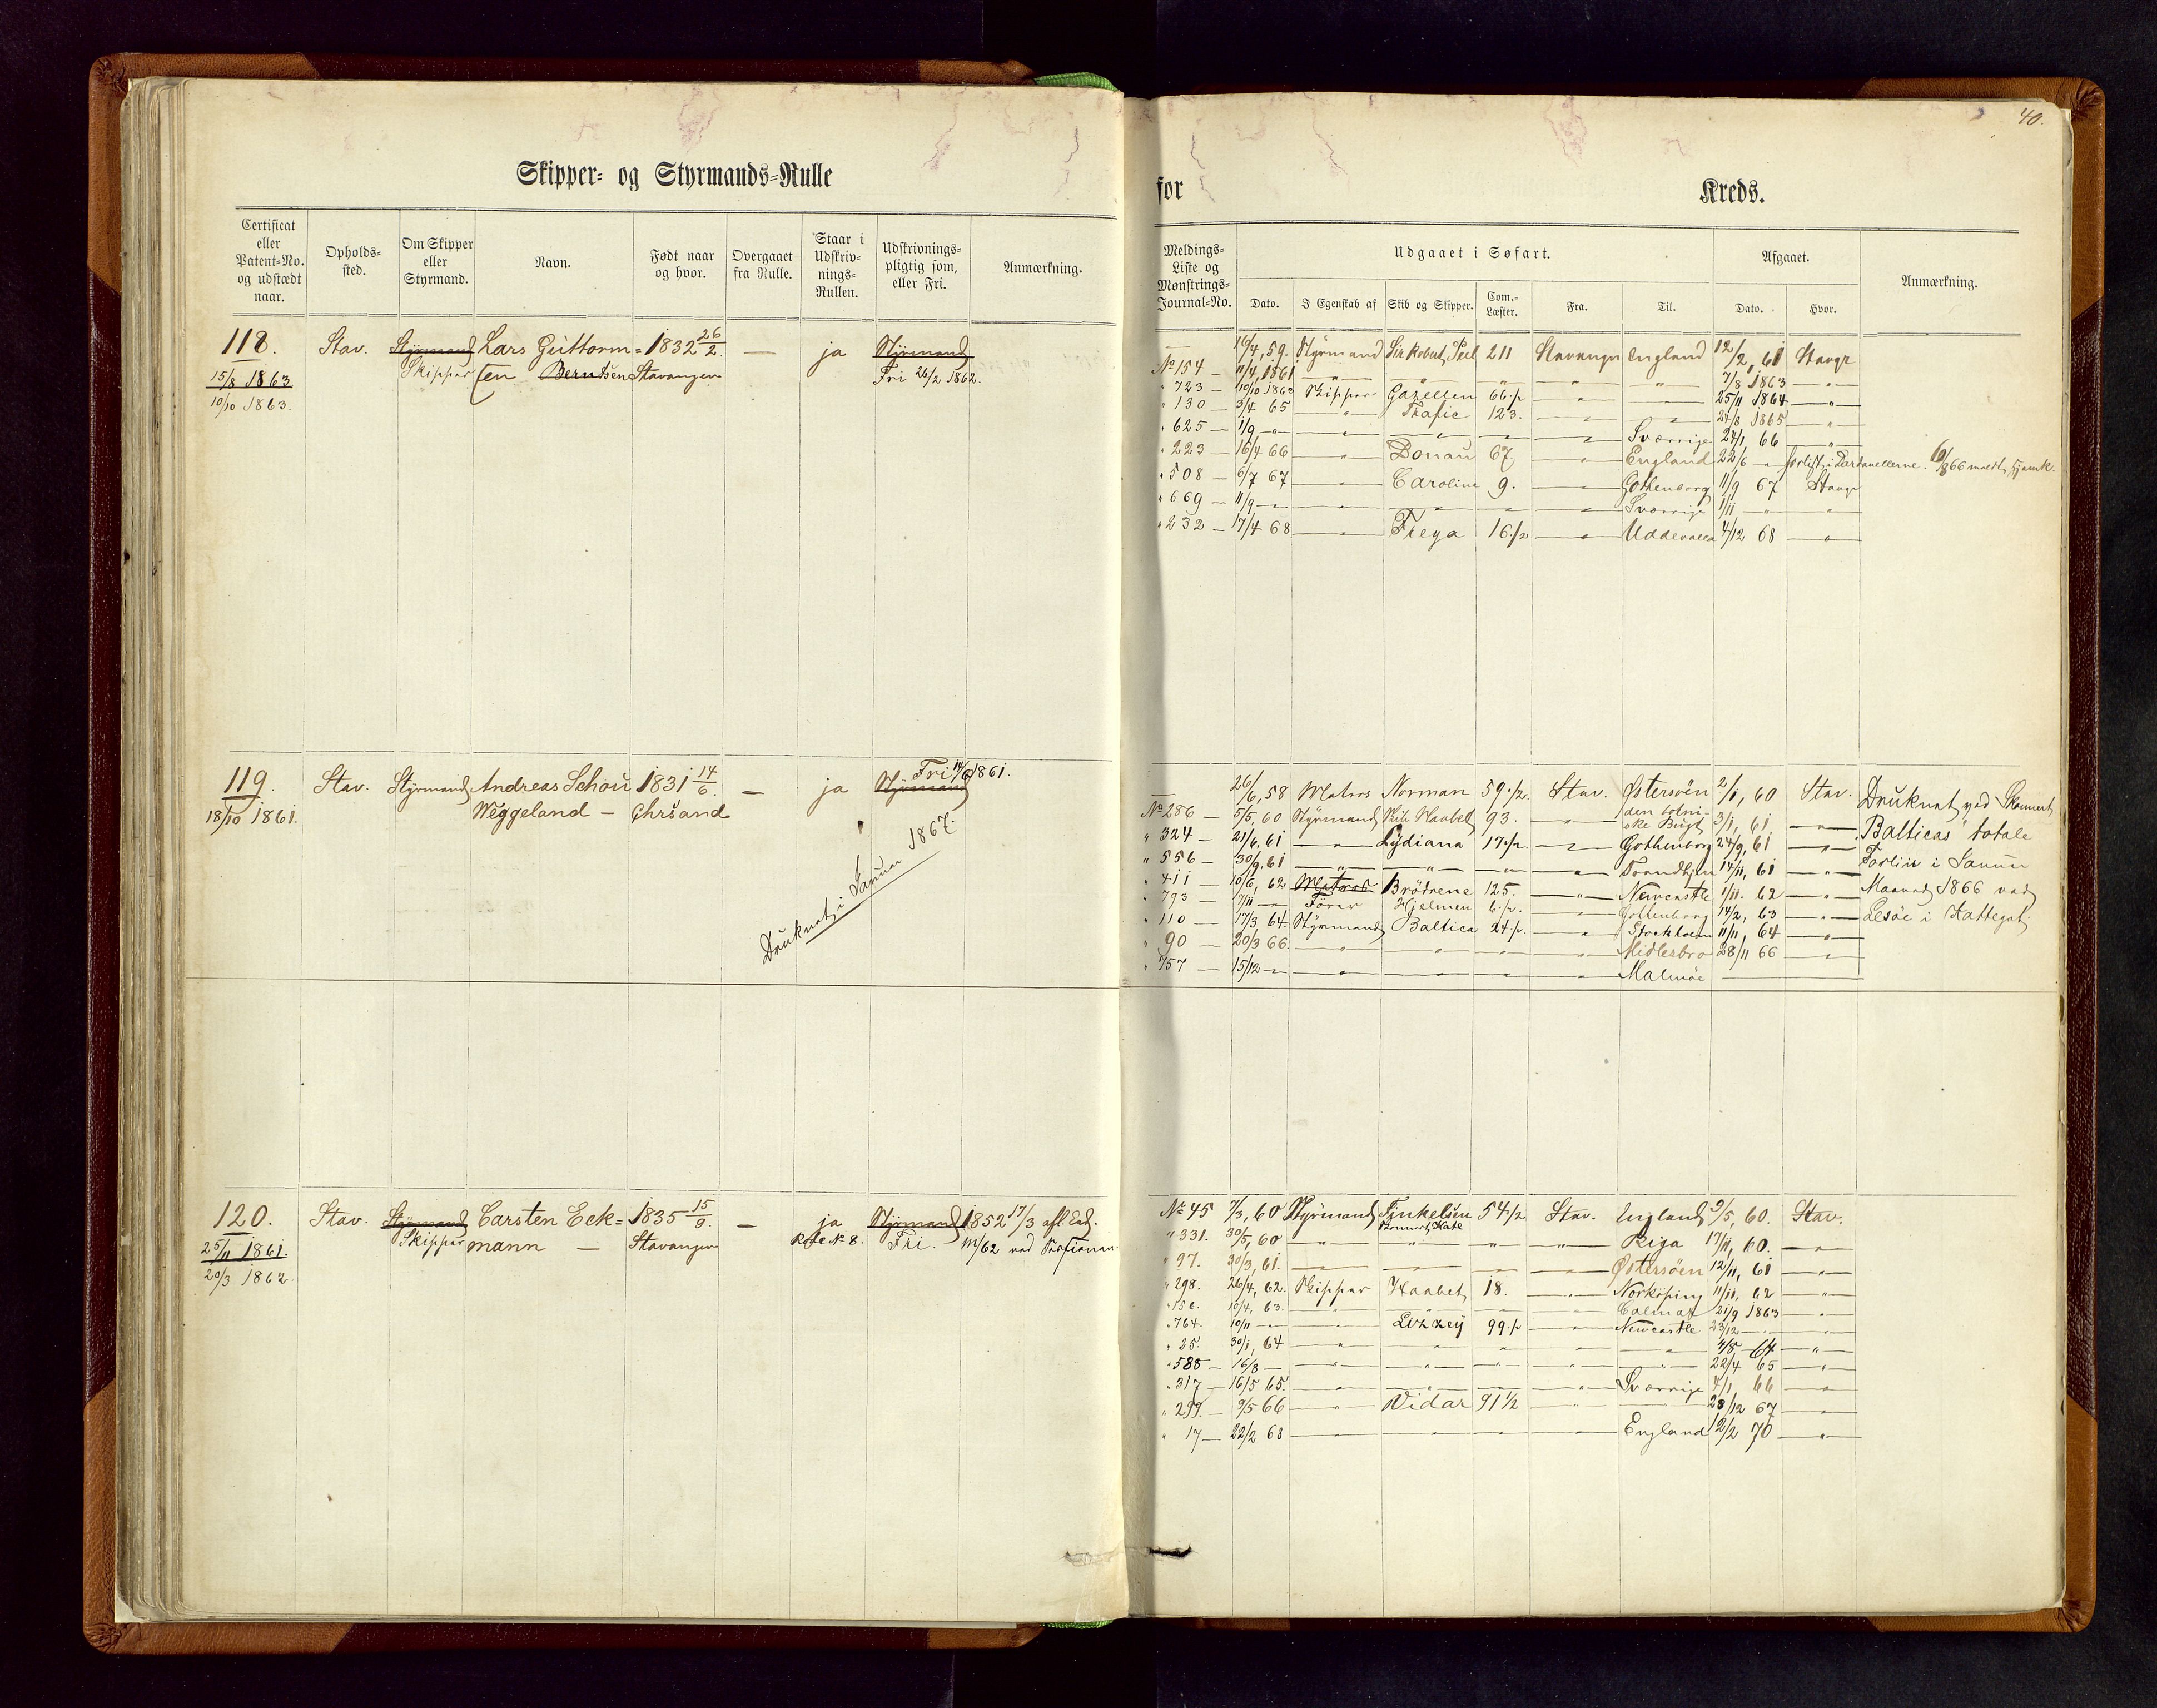 40.
Skipper- og Styrmands-Rulle
for Kreds.
Certificat eller Patent-No. og udstædt naar.
Opholds-sted.
Om Skipper eller Styrmand.
Navn.
Født naar og hvor.
Overgaaet fra Rulle.
Staar i Udskriv-nings-Rullen.
Udskrivnings-pligtig som, eller Fri.
Anmærkning.
Meldings-Liste og Mønstrings-Journal-No.
Udgaaet i Søfart.
Dato. I Egenskab af Skib og Skipper. Com.-Læster. Fra. Til.
Afgaaet.
Dato. Hvor.
Anmærkning.
118. Stav. Styrmand Lars Guttorm= 1832 26/2. — ja Styrmand
15/8 1863 Skipper sen Berntsen Stavanger Fri 26/2 1862.
10/10 1863.
16/4, 59. Styrmand Sir Robert Peel 211 Stavanger England 12/2, 61 Stavgr
No 154 — 11/4, 1861 — " — " " " " 7/8 1863 — " —
" 723 — 10/10 1863 Skipper Gazellen 66 1/2 " — 25/11 1864 — " —
" 130 — 3/4 65 — " — Trafic 123. — — 24/8 1865 — " —
" 625 — 1/9 — " — " — " — " — " — Sverrige 24/1, 66 — " —
" 223 — 16/4 66 — " — Donau 67 — " — England 22/6 — forlist i Dardanellerne. 6/8 66 meldt hjemk.
" 508 — 6/7 67 — " — Caroline 9. — " — Gothenborg 11/9 67 Stavgr
" 669 — 11/9 — " — " — " — " — " — Sverrige 1/11 — " — "
" 232 — 17/4 68 — " — Freya 16 1/2 — " — Uddevalla 4/12 68 — " —
119. Stav. Styrmand Andreas Schou 1831 14/6. — ja Styrmand Fri 14/6 1861.
18/10 1861. Weggeland — Chrsand
Druknet i Januar 1867.
26/6, 58 Matros Norman 59 1/2. Stav. Østersöen 2/1, 60 Stav. Druknet ved Skonnert
No 286 — 5/5, 60 Styrmand Haabet 93. — " — den botni-ske Bugt 3/1, 61 — " — "Balticas" totale
" 324 — 21/6, 61 — " — Lydiana 17 1/2. — " — Gothenborg 24/9, 61 — " — Forliis i Januar
" 556 — 30/9, 61 — " — " — " — " — Trondhjem 14/11, 61 — " — Maaned 1866 ved
" 411 — 10/6, 62 Matros Brödrene 125. — " — Newcastle 1/11. 62 — " — Lesöe i Kattegat.
" 793 — 7/11 — Förer Hjelmen 6 1/2. — " — Gothenborg 14/2, 63 — " —
" 110 — 17/3 64. Styrmand Baltica 24 1/2. — " — Stockholm 11/11, 64 — " —
" 90 — 20/3 66. — " — " — " — " — Midlesbro 28/11 66 — " —
" 757 — 15/12 — — " — " — " — " — Malmöe —
120. Stav. Styrmand Carsten Eck= 1835 15/9. — ja Styrmand 1852 17/3 afl Eed.
25/11 1861. Skipper mann — Stavanger Rode No 8. Fri.
20/3 1862.
No 45 7/3, 60 Styrmand 54 1/2 Stav. England 9/5, 60. Stav.
" 331. 30/5, 60 — " — " — " — " — Riga 17/11, 60. — " —
" 97. 30/3, 61. — " — " — " — " — Østersöen 12/11, 61 — " —
" 298. 26/4, 62. Skipper Haabet 18. — " — Norköping 11/11, 62 — " —
" 156. 10/4, 63. — " — " — " — " — Calmar 21/9 1863 — " —
" 764. 10/11 — — " — Lizzey 99 1/2 — " — Newcastle 23/12 — " —
" 25. 30/1, 64 — " — " — " — " — " — 4/8 64 — " —
" 585 — 16/8 — — " — " — " — " — " — 22/4 65 — " —
" 317 — 16/5 65. — " — " — " — " — Sverrige 4/1 66 — " —
" 299. — 9/5 66 — " — Vidar 91 1/2 — " — 28/12 67 — " —
" 17 — 22/2 68 — " — " — " — " — England 12/2 70 — " —